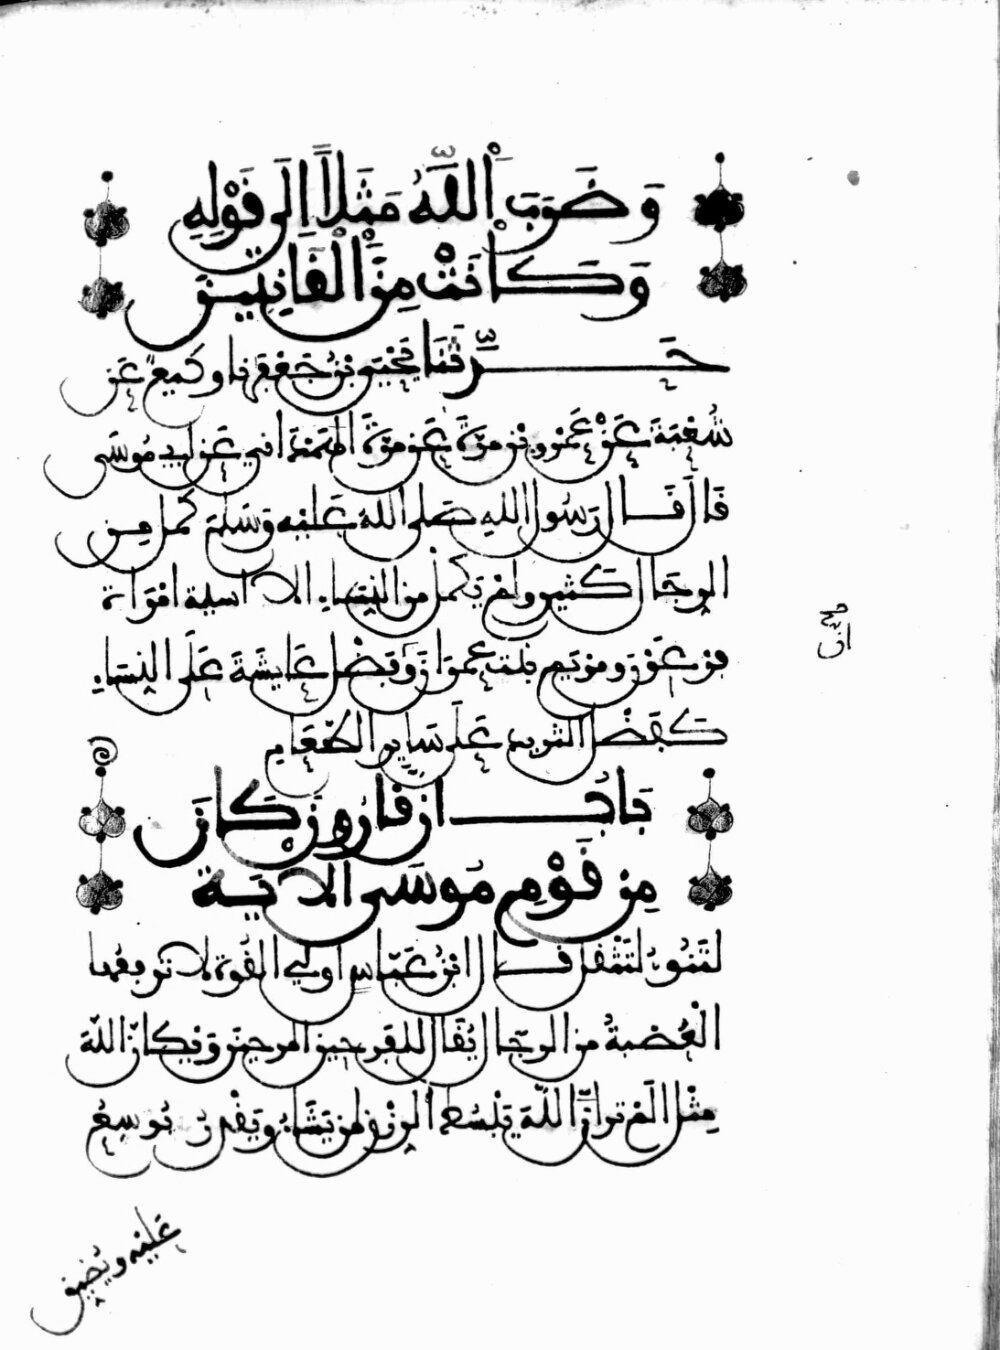 وَضَرَبَ اَللَّهُ مَثَلاً اِلَى قَوْلِهِ
وَكَانَتْ مِنَ اَلْقَانِتِينَ
حَدَّثَنَا يَحْيَى بْنُ جَعْفَرٍ نا وَكِيعٌ عَنْ
شُعْبَةَ عَنْ عَمْرِو بْنِ مُرَّةَ عَنْ مُرَّةَ الْهَمْدَانِي عَنْ ابِي مُوسَى
قَالَ قَالَ رَسُولُ اللهِ صَلى اللهُ عَلَيْهِ وَسَلمَ كَمُلَ مِنَ
الرِّجَالِ كَثِيرٌ وَلَمْ يَكْمُلْ مِنَ النِّسَاءِ الا اسية امْرَاة
فِرْعَوْنَ وَمَرْيَم بنت عِمْرَانَ وَفَضْلُ عَايِشَةَ عَلَى النِّسَاءِ
كَفَضْلِ الثريد عَلَى سَايِرِ الطَّعَامِ
بَابُ ان قَارُونَ كَانَ
مِن قَوْمِ مُوسَى الايَة
لَتَنُوءُ لَتَثْقُلُ قال ابْنُ عَبَّاسٍ اولِي القُوةِ لا يرفعُها
الْعُصْبةُ مِنَ الرِّجَالِ يُقَالُ الفرحين المرحين وَيْكَأنَّ اللهَ
مِثْلُ الَمْ تَرَ انَّ اللهَ يَبْسُطُ اُلرِّزْقَ لِمَنْ يَشَاءُ وَيَقْدِرُ يُوَسِعُ
عَلَيْهِ وَيُضَيِّقُ